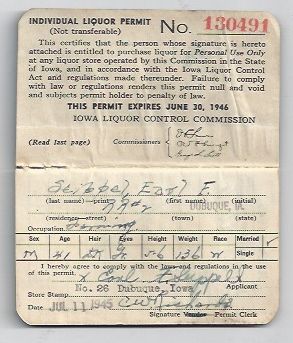 INDIVIDUAL LIQUOR PERMIT
(Not transferable)
No. 130491
This certifies that the person whose signature is hereto
attached is entitled to purchase liquor for Personal Use Only
at any liquor store operated by this Commission in the State
of Iowa, and in accordance with the Iowa Liquor Control
Act and regulations made thereunder. Failure to comply
with law or regulations renders this permit null and void
and subjects permit holder to penalty of law.
THIS PERMIT EXPIRES JUNE 30, 1946
IOWA LIQUOR CONTROL COMMISSION
(Read last page) Commissioners
Earl F.
(last name)—print (first name) (initial)
DUBUQUE, IA.
(residence—street) (town) (state)
Occupation Farming
Sex Age Hair Eyes Height Weight Race Married
M 41 5-6 136 W Single
I hereby agree to comply with the laws and regulations in the use
of this permit.
No. 26 Dubuque, Iowa Applicant
Store Stamp
Date JUL 11 1945 C W Richards
Signature Vendor Permit Clerk